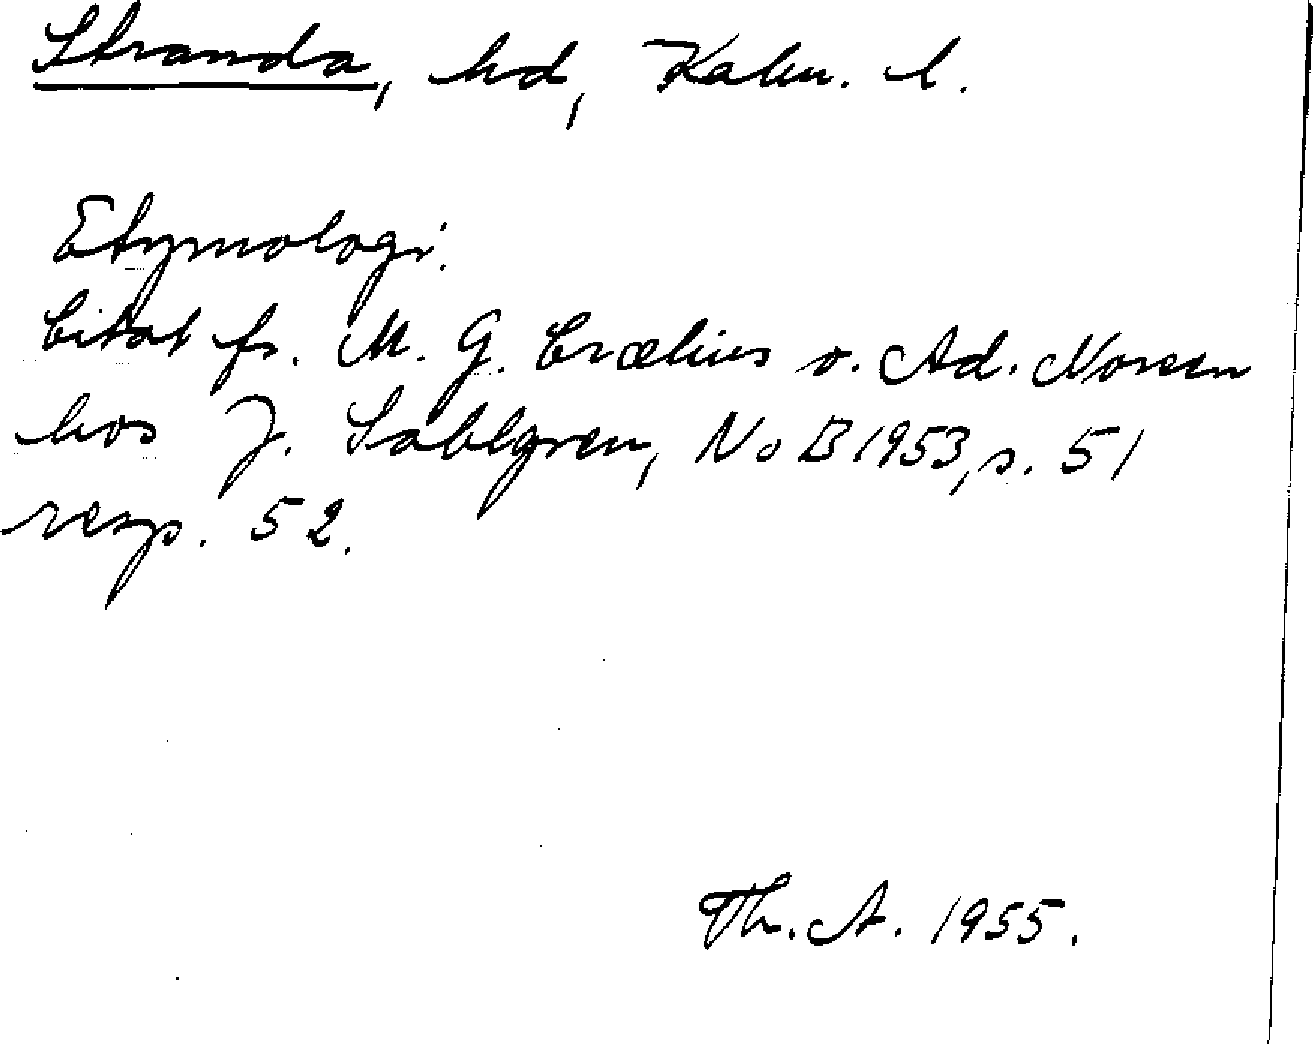 Stranda, hd, Kalm. l.
Etymologi.
Citat fr. M. G. Crælius o. Ad. Noreen
hos J. Sahlgren, NoB 1953, s. 51
resp. 52.
Th. A. 1955.